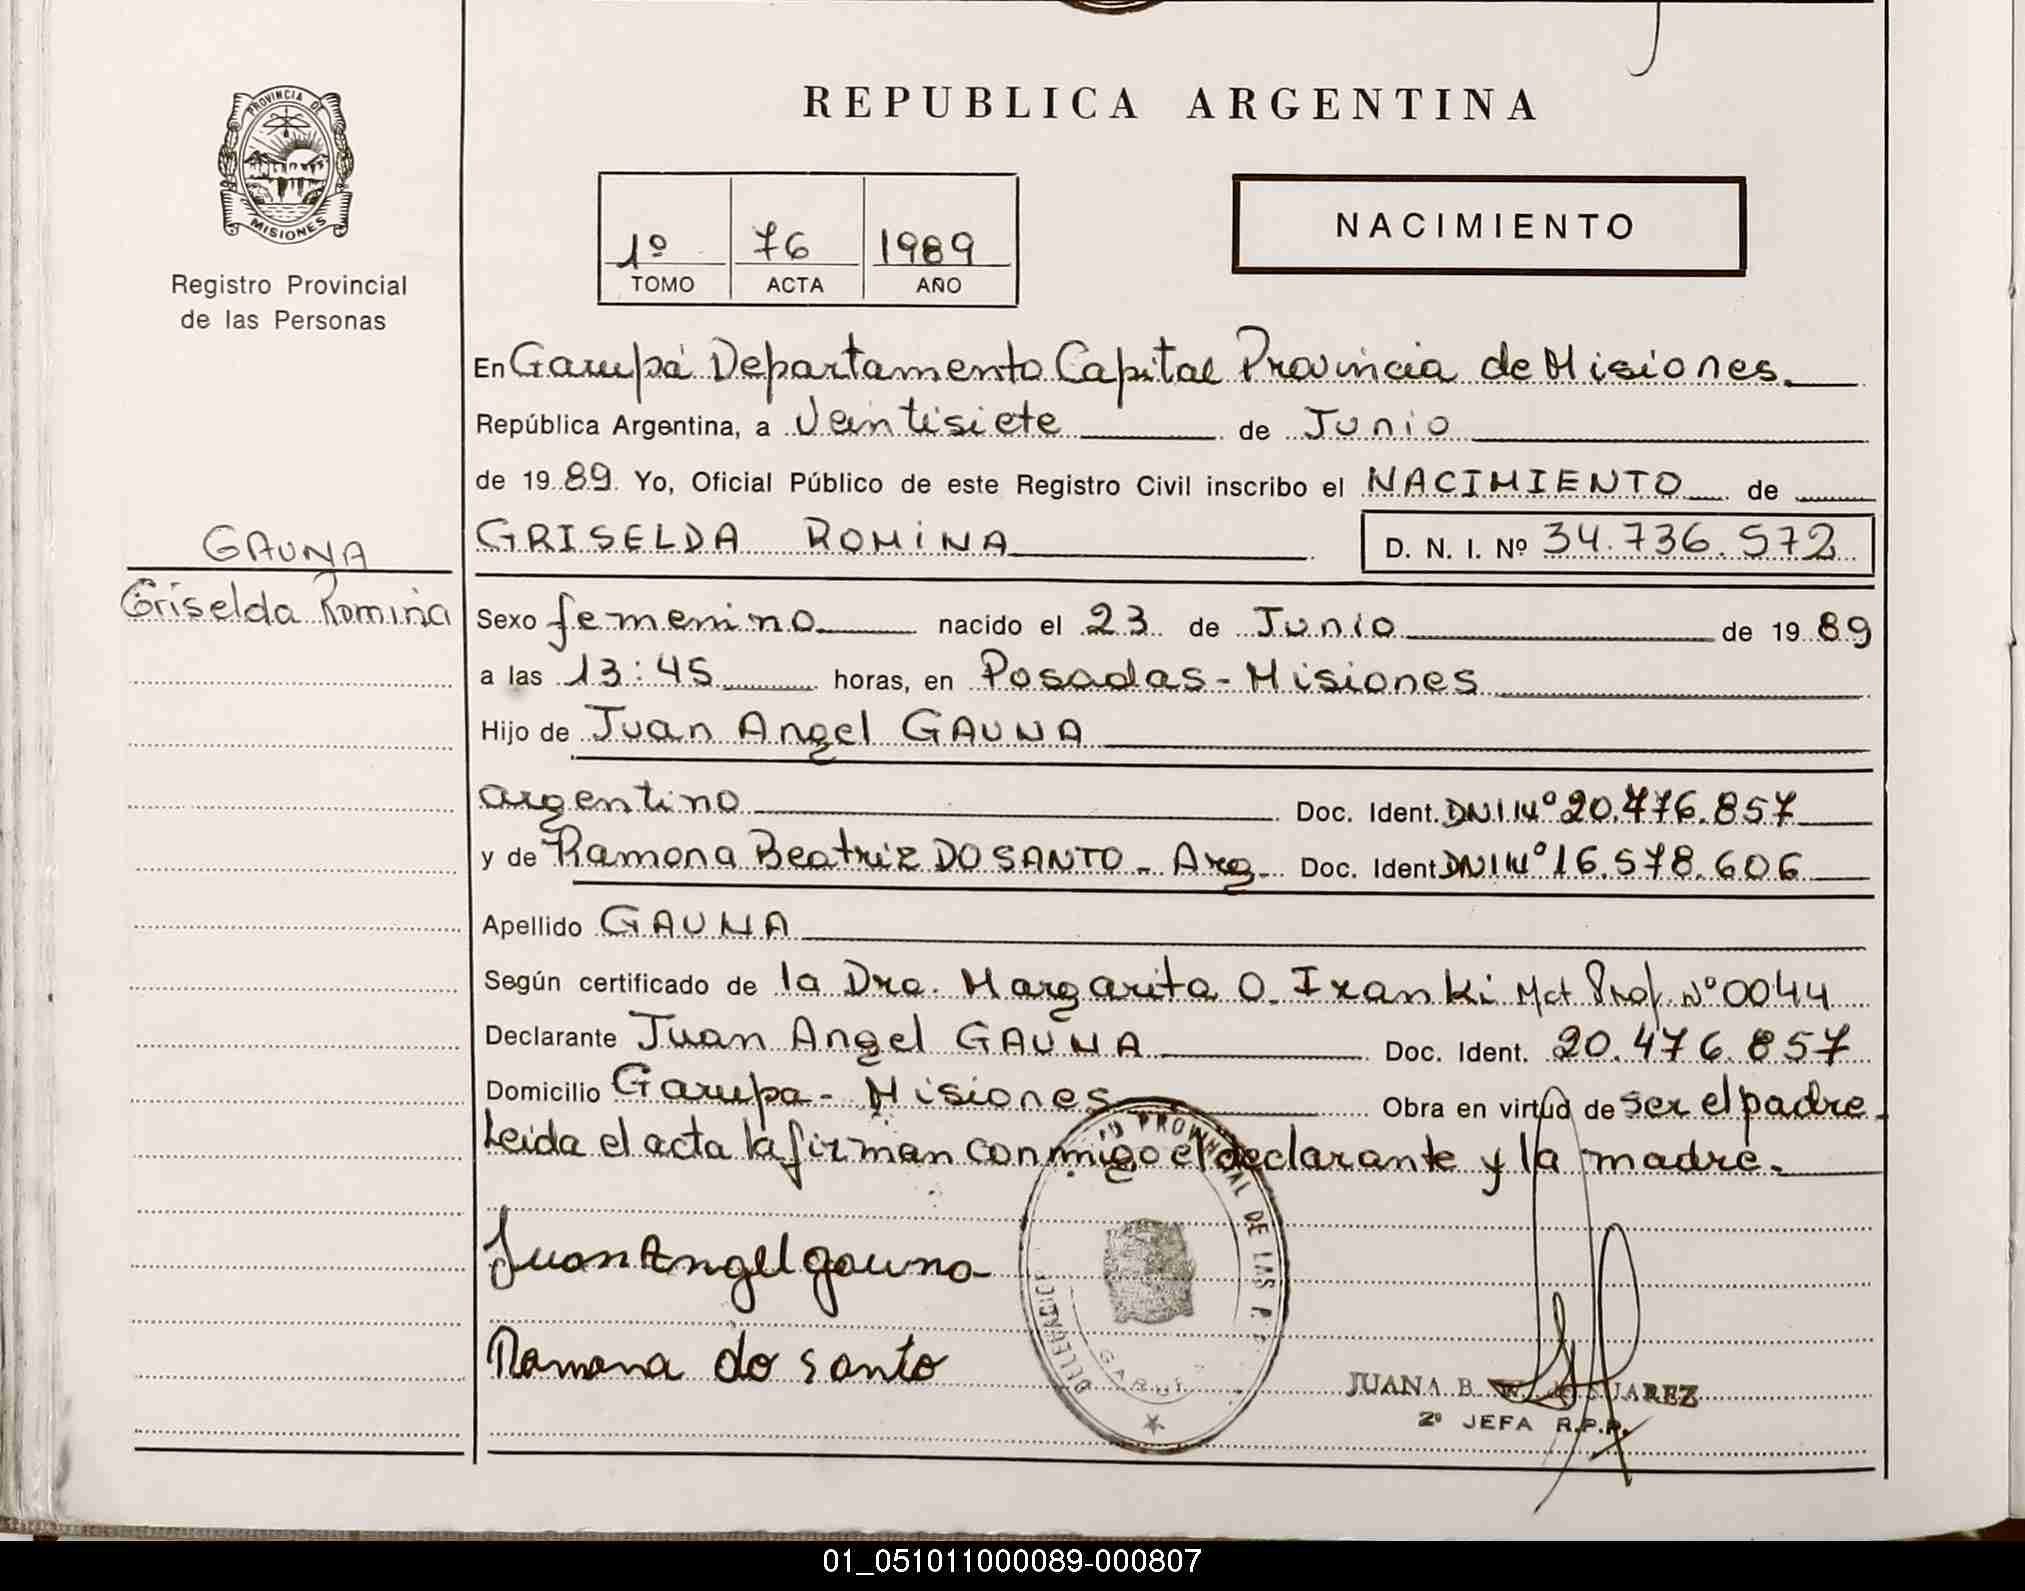 REPUBLICA ARGENTINA
PROVINCIA DE
MISIONES
Registro Provincial
de las Personas
1º 76 1989
TOMO ACTA AÑO
NACIMIENTO
En Garupá Departamento Capital Provincia de Misiones.
República Argentina, a Veintisiete de Junio
de 19 89 Yo, Oficial Público de este Registro Civil inscribo el NACIMIENTO de
GAUNA
Griselda Romina
GRISELDA ROMINA D. N. I. Nº 34.736.572
Sexo femenino nacido el 23 de Junio de 19 89
a las 13:45 horas, en Posadas - Misiones
Hijo de Juan Angel GAUNA
argentino Doc. Ident. DNI Nº 20.476.857
y de Ramona Beatriz DO SANTO - Arg. Doc. Ident DNI Nº 16.578.606
Apellido GAUNA
Según certificado de la Dra. Margarita O. Iranki Mat Prof. Nº 0044
Declarante Juan Angel GAUNA Doc. Ident. 20.476.857
Domicilio Garupa - Misiones Obra en virtud de ser el padre.
Leida el acta la firman conmigo el declarante y la madre.
Juan Angel gauna
Ramona do santo
PROVINCIAL DE LAS P.
DELEGACION
JUANA B. SUAREZ
2º JEFA R.P.P.
01_051011000089-000807